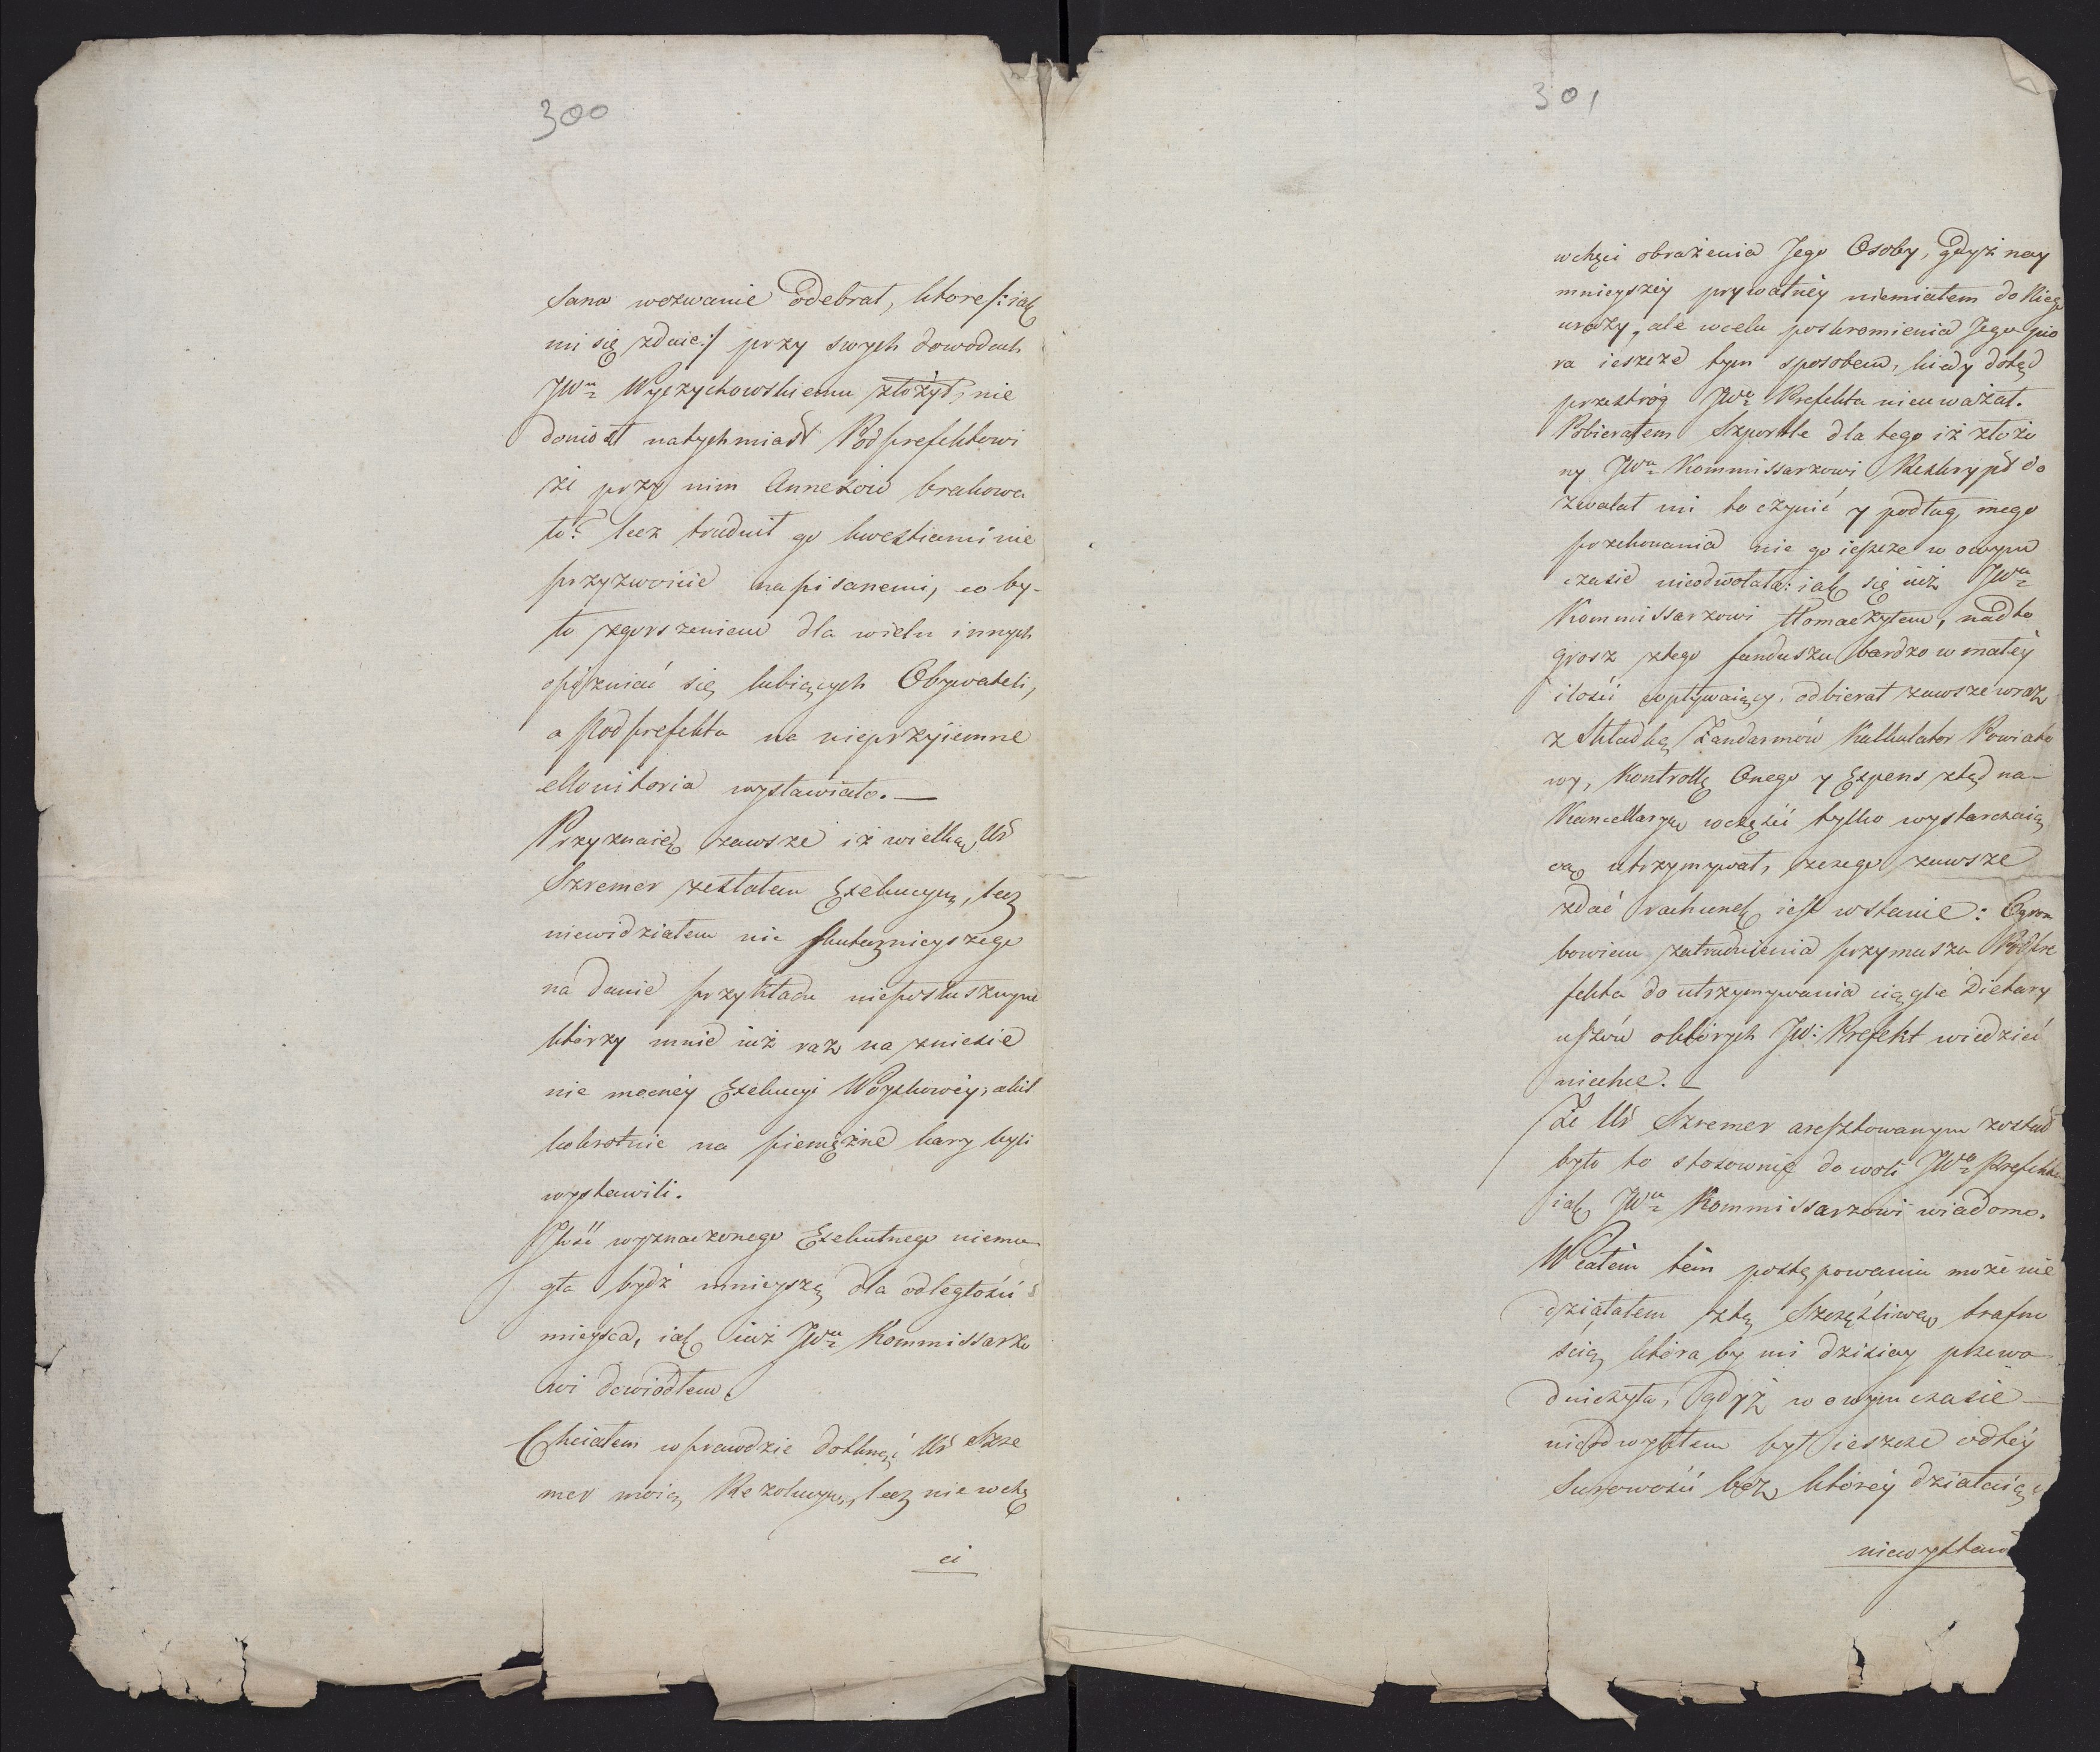 300
sana wezwanie odebrał, ktore /: iak
mi się zdaie :/ przy swych dowodach
JWu Wyczychowskiemu złożył, nie
doniosł natychmiast Podprefektowi
że przy nim Annexow brakowa
ło? lecz trudnił go kwestiami nie
przyzwoicie napisanemi, co by-
ło zgorszeniem dla wielu innych
opóżniać się lubiących Obywateli,
a Podprefekta na nieprzyiemne
Monitoria wystawiało. —
Przyznaię zawsze iż wielką Ur
Szremer zesłałem Exekucyą, lecz
niewidziałem nic skutecznieyszego
na danie przykładu nieposłusznym
którzy mnie iuż raz na zniesie
nie mocney Exekucyi Woyskowéy, a kil
kokrotnie na pieniężne kary byli
wystawili.
Ilość wyznaczonego Exekutnego niemo
gła bydź mnieyszą dla odległości
mieysca, iak iuż JWu Kommissarzo
wi dowiodłem.
Chciałem wprawdzie dotknąć Ur Szre
mer moią Rezolucyą, lecz nie w chę
ci
301
w chęci obrażenia Jego Osoby, gdyż nay
mnieyszéy prywatnéy niemiałem do Niego
urazy, ale w celu poskromienia Jego pió
ra ieszcze tym sposobem, kiedy dotąd
przestróg JWo Prefekta nieuważał.
Pobierałem Szportle dla tego iż złożo
ny JWu Kommissarzowi Reskrypt do
zwalał mi to czynić y podług mego
przekonania nie go ieszcze w owym
czasie nieodwołało: iak się iuż JWu
Kommissarzowi tłomaczyłem, nadto
grosz ztego funduszu bardzo w małéy
ilości wpływaiący, odbierał zawsze wraz
z Składką Żandarmów Kalkulator Powiato
wy, Kontrollę Onego y Expens ztąd na-
Kancellaryą w części tylko wystarczaią
cą utrzymywał, z czego zawsze
zdać rachunek iest wstanie: Ogrom
bowiem zatrudnienia przymusza Podpre
fekta do utrzymywania ciągle Dietary
uszów o których JW: Prefekt wiedzieć
niechce. —
Że Ur Szremer aresztowanym został
było to stosownie do woli JWo Prefekta
iak JWu Kommissarzowi wiadomo.
W całem tém postępowaniu może nie
działałem z tą szczęśliwą trafno
ścią która by mi dzisiay przewo
dniczyła, gdyż w owym czasie —
nieodwykłem był ieszcze od téy
Surowości bez któréy działaiąc
niewystaw